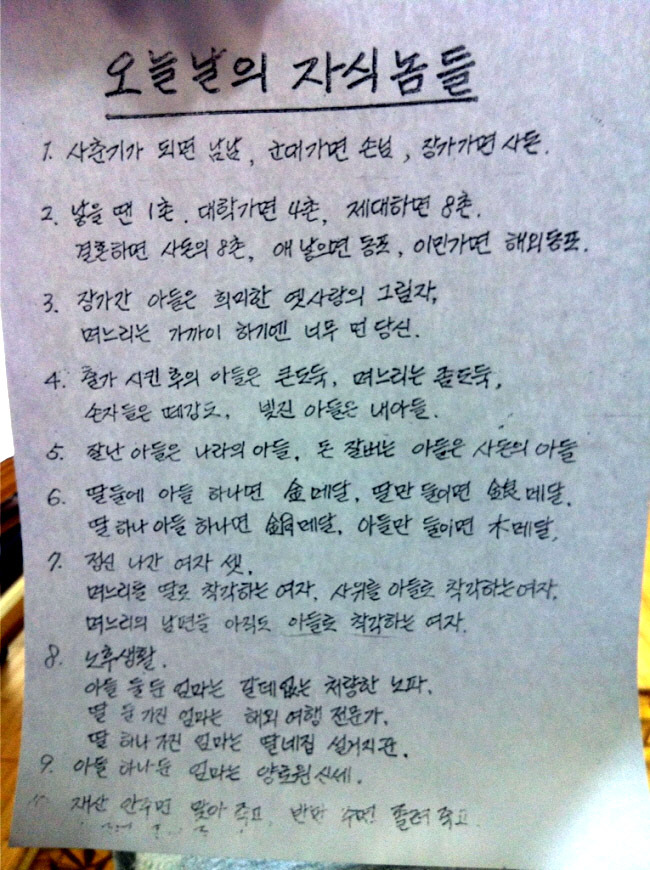 오늘날의 자식놈들
1. 사춘기가 되면 남남, 군대가면 손님, 장가가면 사돈.
2. 낳을 땐 1촌. 대학가면 4촌, 제대하면 8촌.
결혼하면 사돈의 8촌, 애 낳으면 동포, 이민가면 해외동포.
3. 장가간 아들은 희미한 옛사랑의 그림자,
며느리는 가까이 하기엔 너무 먼 당신.
4. 출가 시킨 후의 아들은 큰도둑, 며느리는 좀도둑,
손자들은 떼강도, 빚진 아들은 내아들.
5. 잘난 아들은 나라의 아들, 돈 잘버는 아들은 사돈의 아들
6. 딸둘에 아들 하나면 金메달, 딸만 둘이면 銀메달,
딸하나 아들 하나면 銅메달, 아들만 둘이면 木메달,
7. 정신 나간 여자 셋,
며느리를 딸로 착각하는 여자, 사위를 아들로 착각하는여자,
며느리의 남편을 아직도 아들로 착각하는 여자.
8. 노후생활.
아들 둘 둔 엄마는 갈데없는 처량한 노파.
딸 둘 가진 엄마는 해외 여행 전문가.
딸 하나 가진 엄마는 딸네집 설거지꾼.
9. 아들 하나둔 엄마는 양로원신세.
재산 안주면 맞아 죽고, 반만 주면 졸려 죽고.